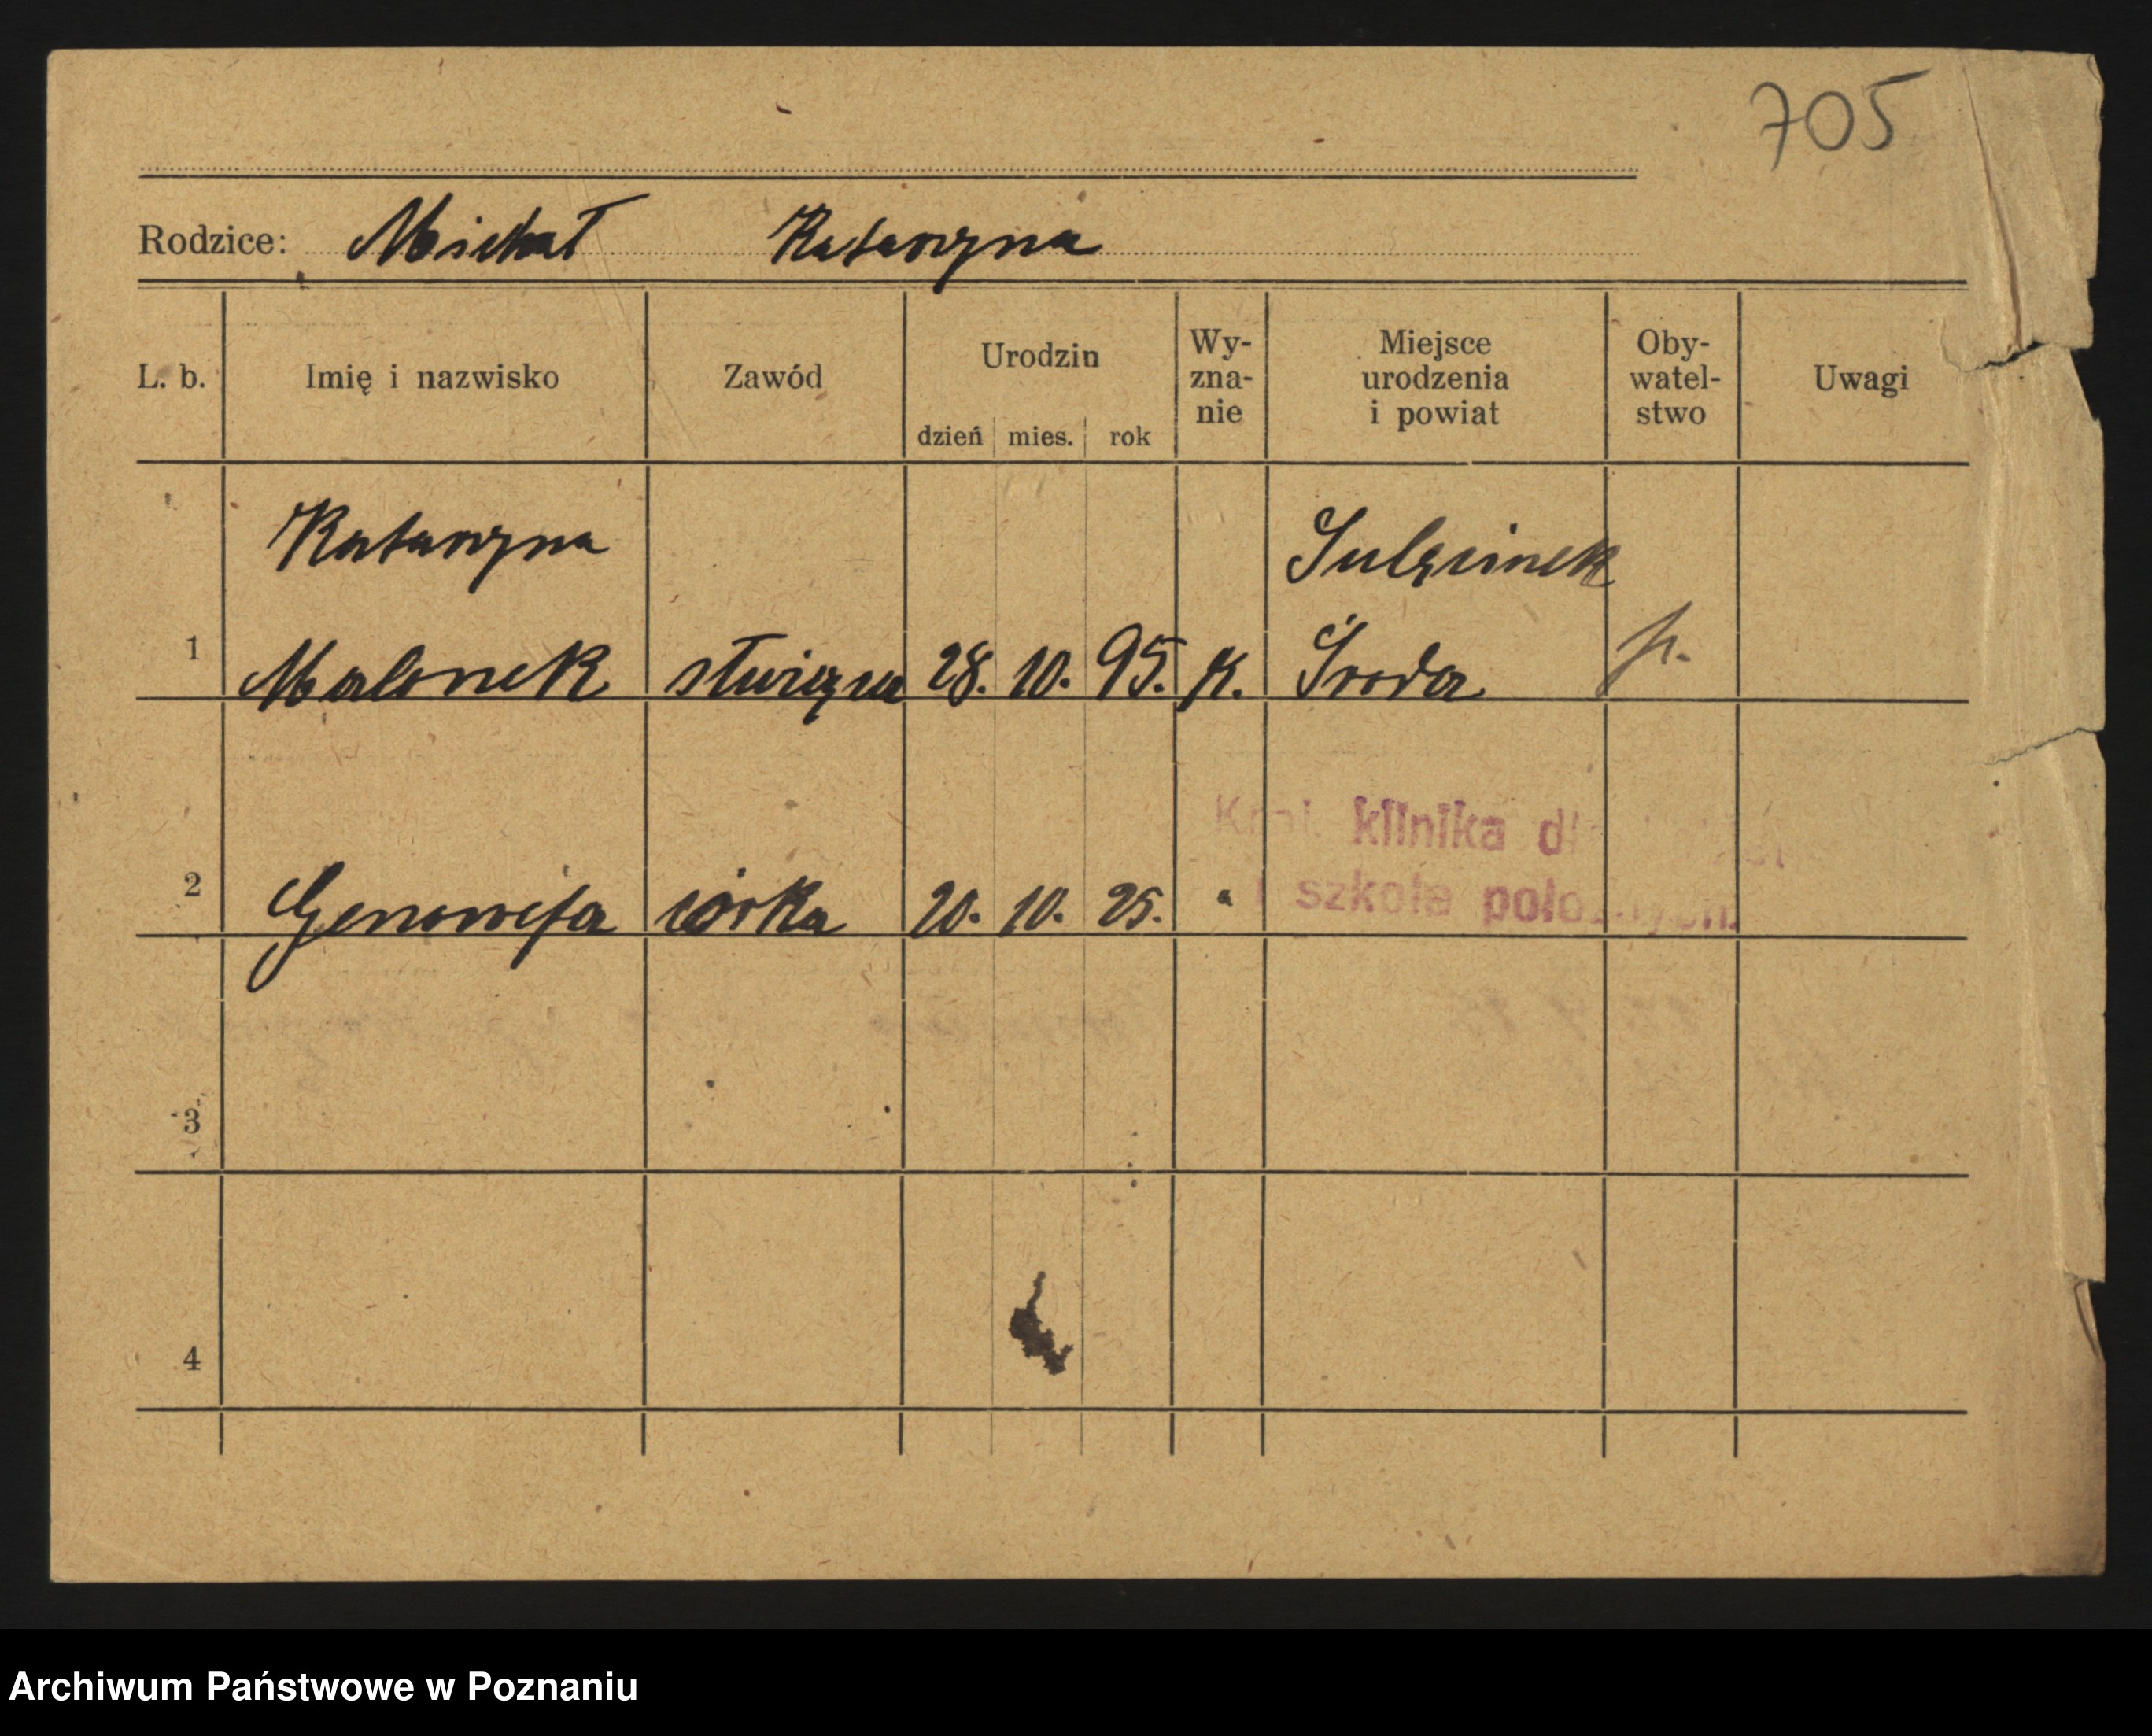 705
Rodzice: Michał Katarzyna
L. b. Imię i nazwisko Zawód Urodzin dzień mies. rok Wy- zna- nie Miejsce urodzenia i powiat Oby- watel- stwo Uwagi
Katarzyna Sulęcinek
1 Malonek służąca 28. 10. 95. K. Środa p.
klinika
2 Genowefa córka 20. 10. 25. " i szkoła
3
4
Archiwum Państwowe w Poznaniu